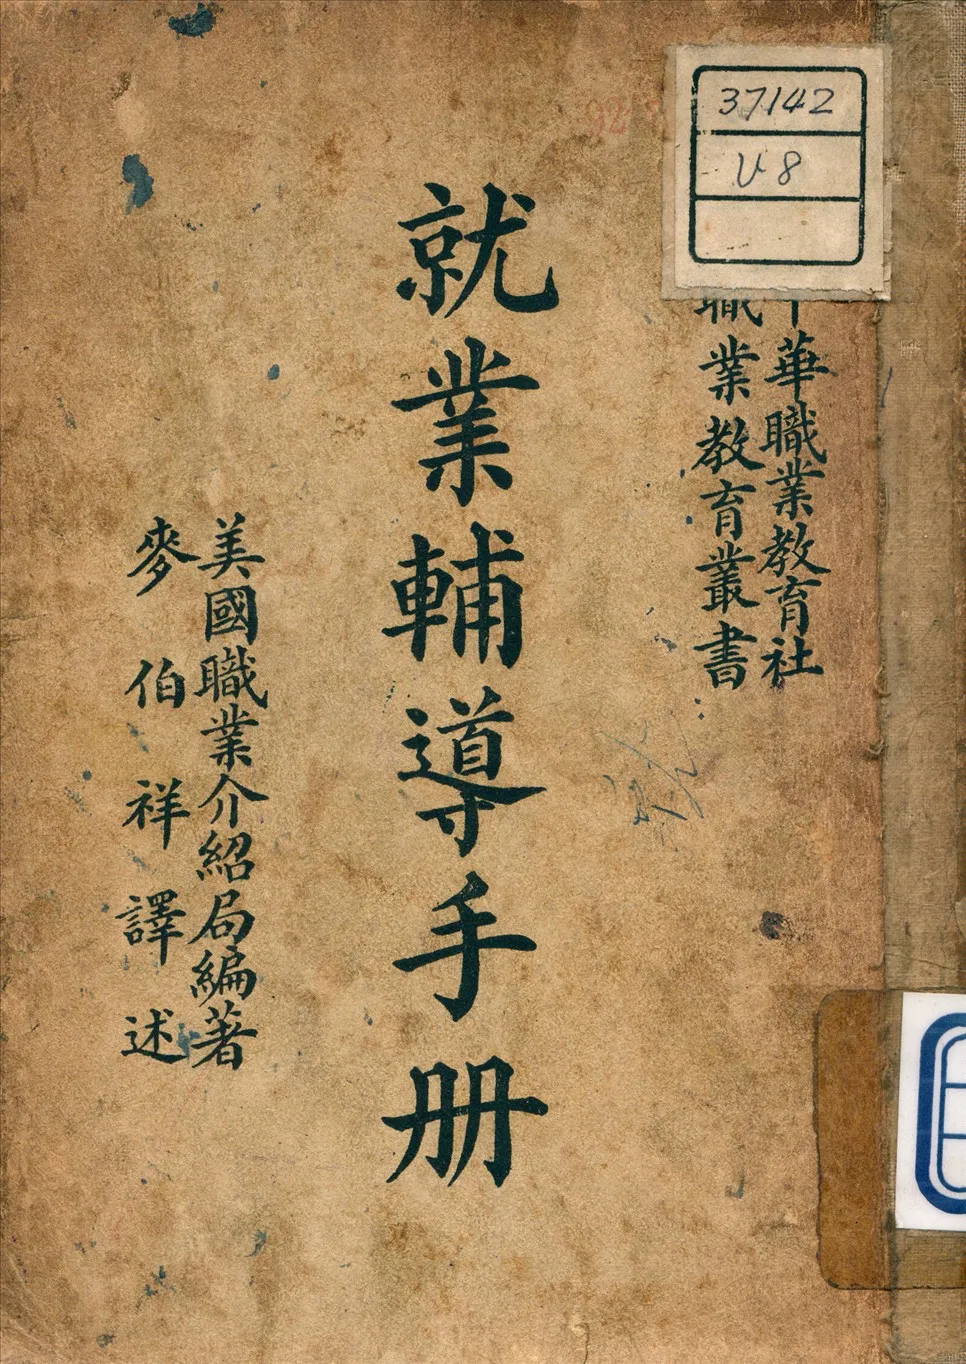 37142
V8
中華職業教育社
職業教育叢書
就業輔導手册
美國職業介紹局編著
麥伯祥譯述